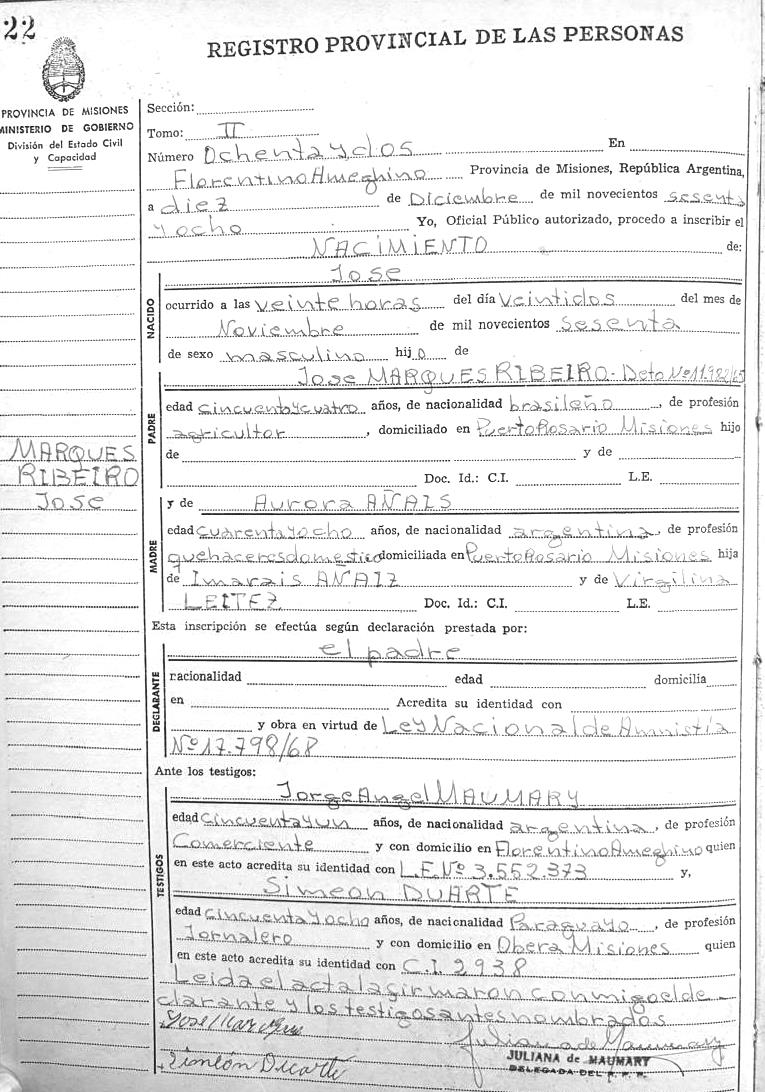 22
REGISTRO PROVINCIAL DE LAS PERSONAS
PROVINCIA DE MISIONES
MINISTERIO DE GOBIERNO
División del Estado Civil
y Capacidad
Sección:
Tomo: II
Número Ochenta y dos En
Florentino Ameghino Provincia de Misiones, República Argentina,
a diez de Diciembre de mil novecientos sesenta
y ocho Yo, Oficial Público autorizado, procedo a inscribir el
NACIMIENTO de:
Jose
NACIDO
ocurrido a las veinte horas del día Veintidos del mes de
Noviembre de mil novecientos sesenta
de sexo masculino hijo de
Jose MARQUES RIBEIRO - Dcto Nº 11.982/65
PADRE
edad cincuenta y cuatro años, de nacionalidad brasileño, de profesión
agricultor, domiciliado en Puerto Rosario Misiones hijo
de y de
Doc. Id.: C.I. L.E.
MARQUES
RIBEIRO
Jose
MADRE
y de Aurora AÑAIS
edad cuarenta y ocho años, de nacionalidad argentina, de profesión
quehaceres domestico domiciliada en Puerto Rosario Misiones hija
de Imarais AÑAIZ y de Virgilina
LEITEZ Doc. Id.: C.I. L.E.
Esta inscripción se efectúa según declaración prestada por:
el padre
DECLARANTE
nacionalidad edad domicilia
en Acredita su identidad con
y obra en virtud de Ley Nacional de Amnistía
Nº 17.798/68
Ante los testigos:
TESTIGOS
Jorge Angel MAUMARY
edad cincuenta y un años, de nacionalidad argentina, de profesión
Comerciente y con domicilio en Florentino Ameghino quien
en este acto acredita su identidad con L.E. Nº 3.552.373 y,
Simeon DUARTE
edad cincuenta y ocho años, de nacionalidad Paraguayo, de profesión
Jornalero y con domicilio en Obera Misiones quien
en este acto acredita su identidad con C.I. 2938
Leida el acta la firmaron conmigo el de
clarante y los testigos antes nombrados
Jose Marques
Juliana de Maumary
Simeón Duarte
JULIANA de MAUMARY
DELEGADA DEL R. P. P.